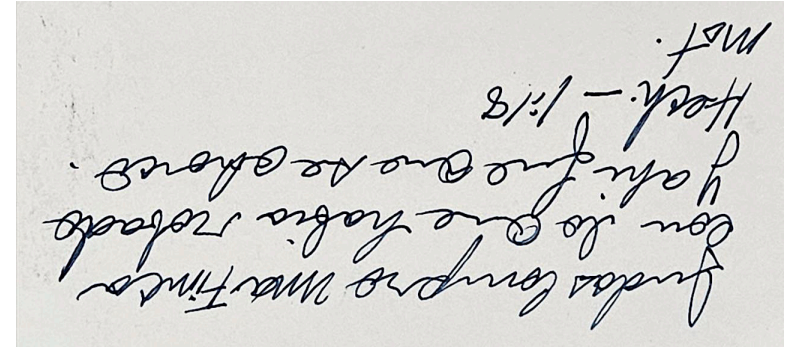 Judas compro una Finca
con lo Que habia robado
y ahi fue Que se ahorco.
Hech. - 1:18
Mat.